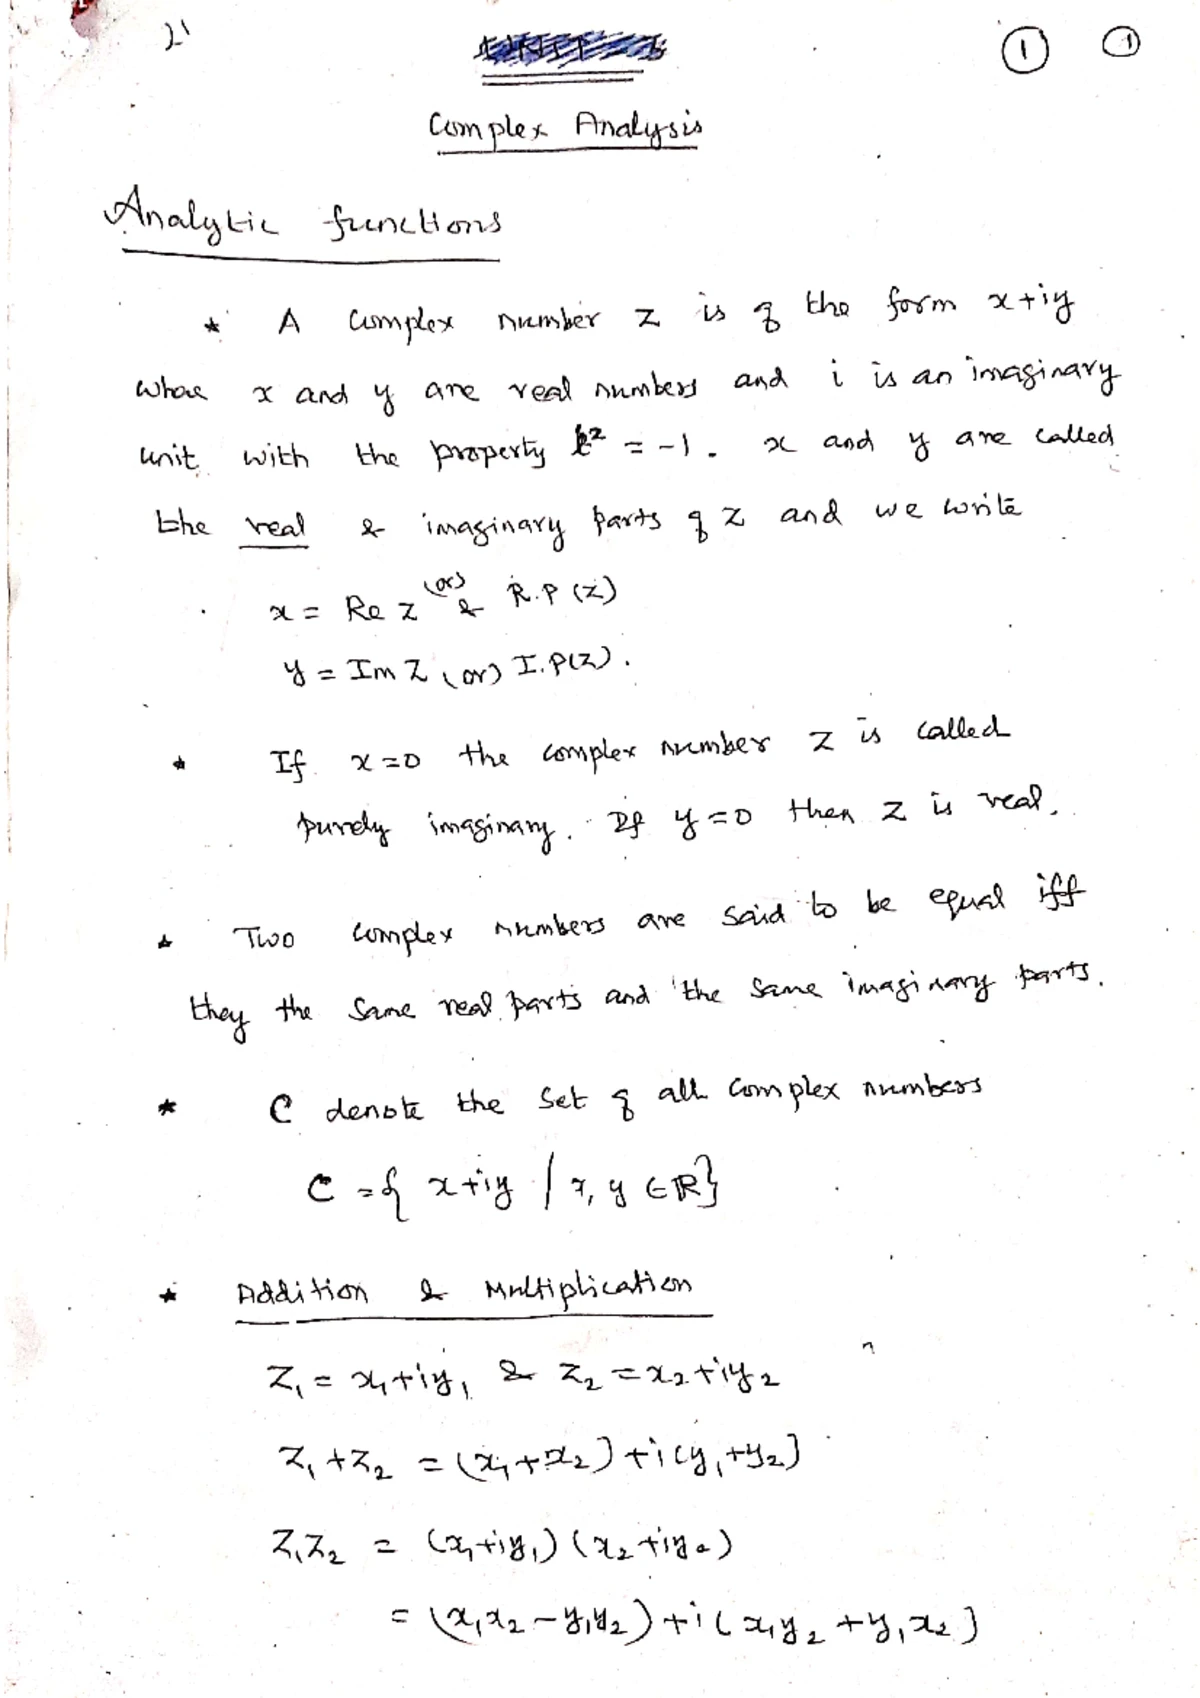 21
① ①
Complex Analysis
Analytic functions
* A complex number z is of the form x+iy
where x and y are real numbers and i is an imaginary
unit with the property i² = -1. x and y are called
the real & imaginary parts of z and we write
x = Re z (or) & R.P (z)
y = Im z (or) I.P(z).
* If x=0 the complex number z is called
purely imaginary. If y=0 then z is real.
* Two complex numbers are said to be equal iff
they the same real parts and the same imaginary parts.
* C denote the set of all complex numbers
C = { x+iy / x, y ∈ ℝ}
* Addition & Multiplication
z₁ = x₁+iy₁ & z₂ = x₂+iy₂
z₁+z₂ = (x₁+x₂)+i(y₁+y₂)
z₁z₂ = (x₁+iy₁)(x₂+iy₂)
= (x₁x₂-y₁y₂)+i(x₁y₂+y₁x₂)